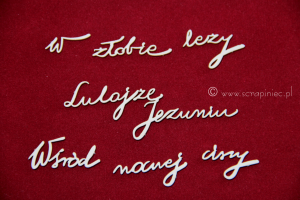 W złobie leży
© www.scrapiniec.pl
Lulajże
Jezuniu
Wśród nocnej ciszy